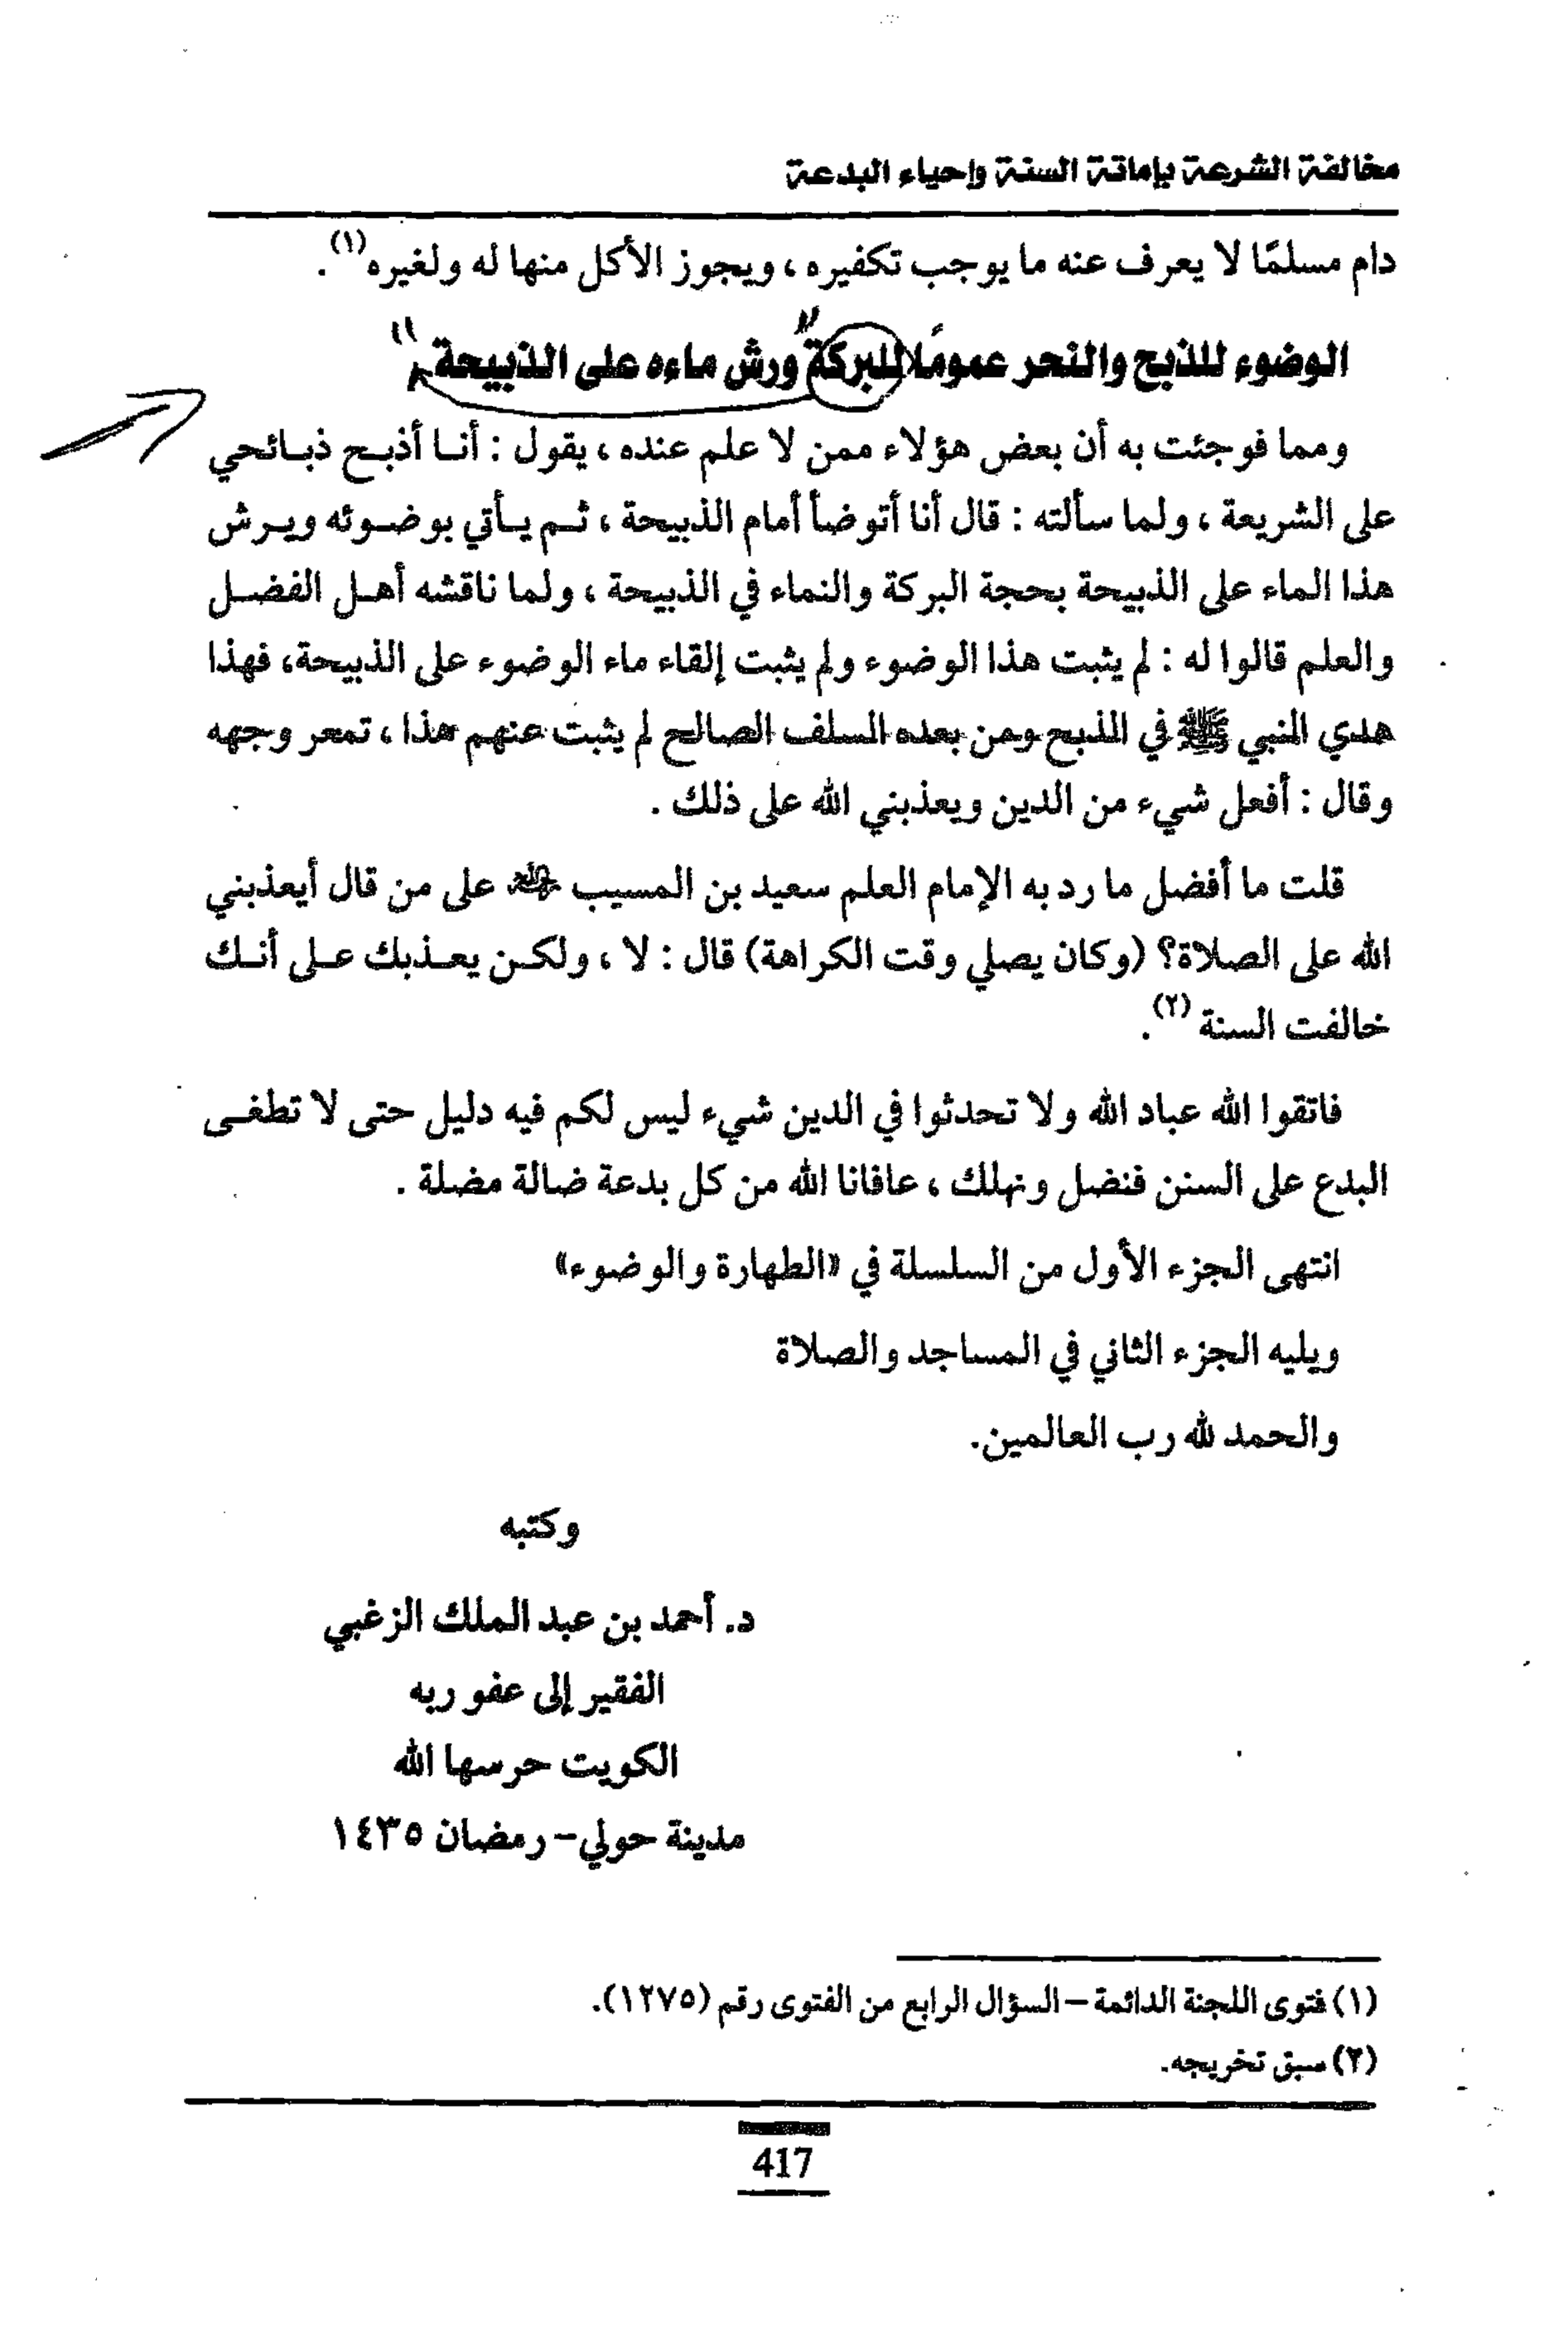 مخالفة الشرعة بإماتة السنة وإحياء البدعة
دام مسلمًا لا يعرف عنه ما يوجب تكفيره ، ويجوز الأكل منها له ولغيره(١).
الوضوء للذبح والنحر عمومًا للبركة ورش ماءه على الذبيحة
ومما فوجئت به أن بعض هؤلاء ممن لا علم عنده ، يقول : أنا أذبح ذبائحي
على الشريعة ، ولما سألته : قال أنا أتوضأ أمام الذبيحة ، ثم يأتي بوضوئه ويرش
هذا الماء على الذبيحة بحجة البركة والنماء في الذبيحة ، ولما ناقشه أهل الفضل
والعلم قالوا له : لم يثبت هذا الوضوء ولم يثبت إلقاء ماء الوضوء على الذبيحة، فهذا
هدي النبي ﷺ في الذبح ومن بعده السلف الصالح لم يثبت عنهم هذا ، تمعر وجهه
وقال : أفعل شيء من الدين ويعذبني الله على ذلك .
قلت ما أفضل ما رد به الإمام العلم سعيد بن المسيب على من قال أيعذبني
الله على الصلاة؟ (وكان يصلي وقت الكراهة) قال : لا ، ولكن يعذبك على أنك
خالفت السنة (٢).
فاتقوا الله عباد الله ولا تحدثوا في الدين شيء ليس لكم فيه دليل حتى لا تطغى
البدع على السنن فنضل ونهلك ، عافانا الله من كل بدعة ضالة مضلة .
انتهى الجزء الأول من السلسلة في «الطهارة والوضوء»
ويليه الجزء الثاني في المساجد والصلاة
والحمد لله رب العالمين.
وكتبه
د. أحمد بن عبد الملك الزغبي
الفقير إلى عفو ربه
الكويت حرسها الله
مدينة حولي– رمضان ١٤٣٥
(١) فتوى اللجنة الدائمة – السؤال الرابع من الفتوى رقم (١٢٧٥).
(٢) سبق تخريجه.
417